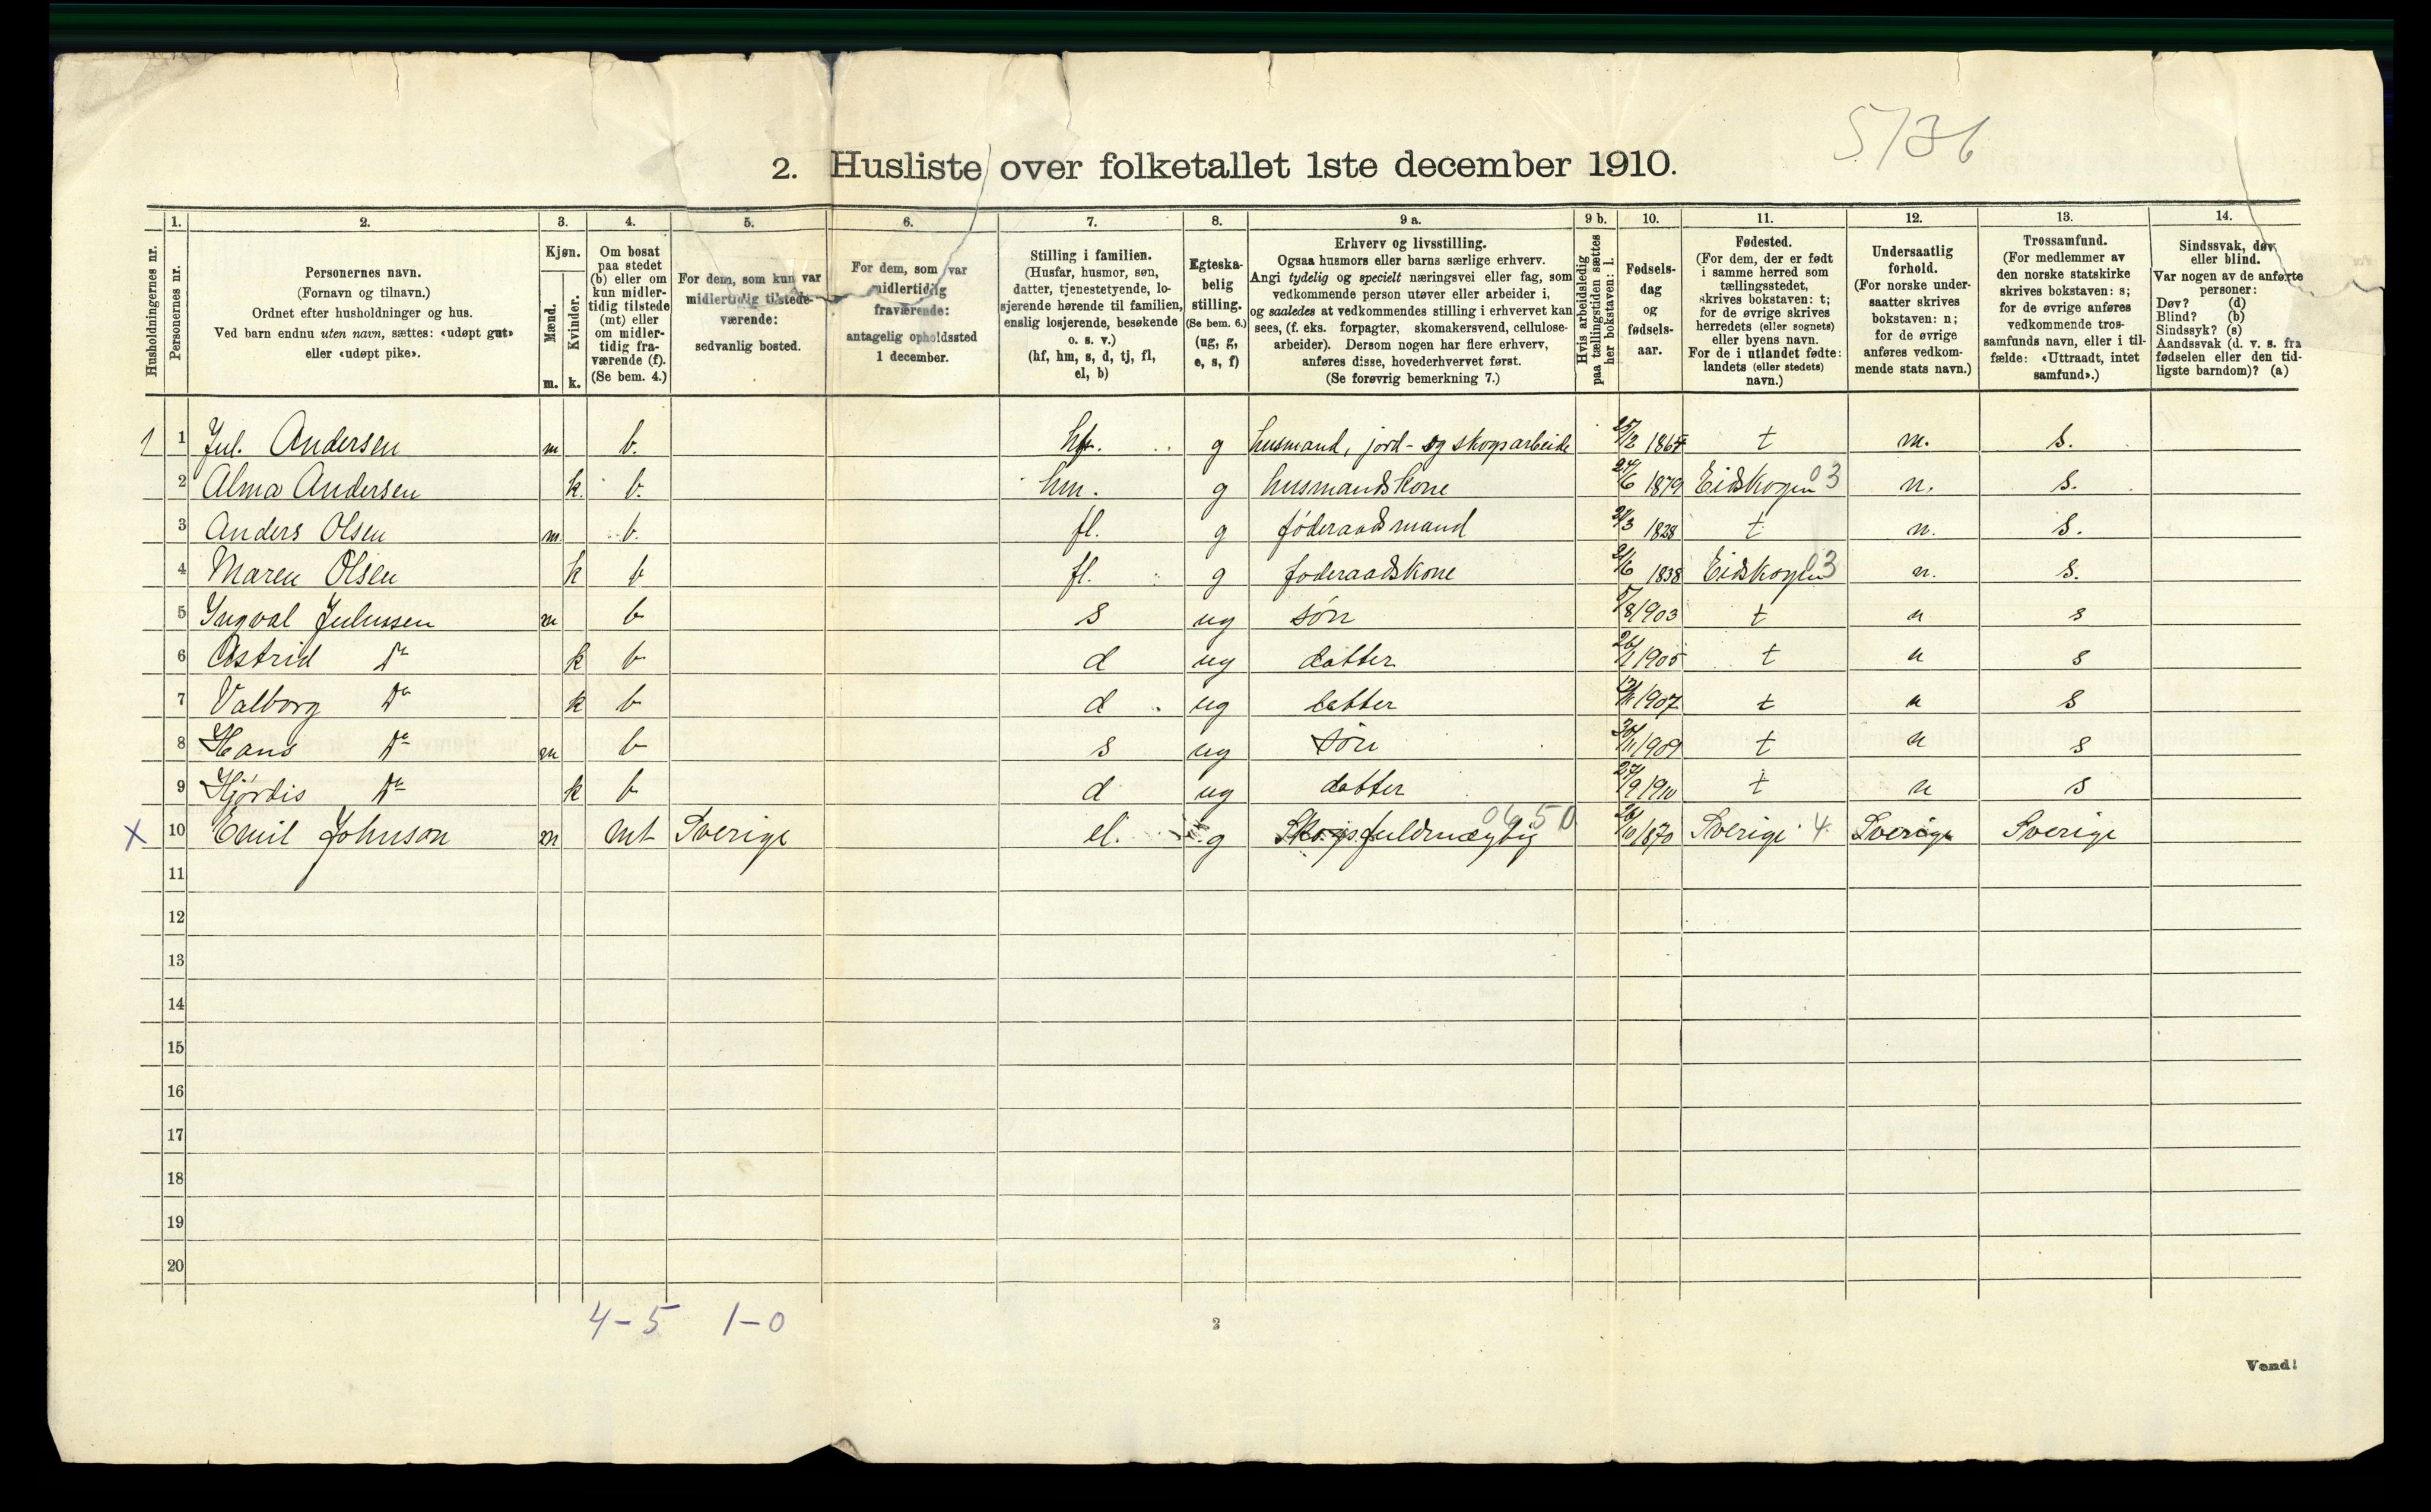 5/36
2. Husliste over folketallet 1ste december 1910.
Husholdningernes nr.
1. Personernes nr.
2. Personernes navn. (Fornavn og tilnavn.) Ordnet efter husholdninger og hus. Ved barn endnu uten navn, sættes: «udøpt gut» eller «udøpt pike».
3. Kjøn. Mænd. m. Kvinder. k.
4. Om bosat paa stedet (b) eller om kun midlertidig tilstede (mt) eller om midlertidig fraværende (f). (Se bem. 4.)
5. For dem, som kun var midlertidig tilstedeværende: sedvanlig bosted.
6. For dem, som var midlertidig fraværende: antagelig opholdssted 1 december.
7. Stilling i familien. (Husfar, husmor, søn, datter, tjenestetyende, losjerende hørende til familien, enslig losjerende, besøkende o. s. v.) (hf, hm, s, d, tj, fl, el, b)
8. Egteskabelig stilling. (Se bem. 6.) (ug, g, e, s, f)
9 a. Erhverv og livsstilling. Ogsaa husmors eller barns særlige erhverv. Angi tydelig og specielt næringsvei eller fag, som vedkommende person utøver eller arbeider i, og saaledes at vedkommendes stilling i erhvervet kan sees, (f. eks. forpagter, skomakersvend, cellulosearbeider). Dersom nogen har flere erhverv, anføres disse, hovederhvervet først. (Se forøvrig bemerkning 7.)
9 b. Hvis arbeidsledig paa tællingstiden sættes her bokstaven: l.
10. Fødselsdag og fødselsaar.
11. Fødested. (For dem, der er født i samme herred som tællingsstedet, skrives bokstaven: t; for de øvrige skrives herredets (eller sognets) eller byens navn. For de i utlandet fødte: landets (eller stedets) navn.)
12. Undersaatlig forhold. (For norske undersaatter skrives bokstaven: n; for de øvrige anføres vedkommende stats navn.)
13. Trossamfund. (For medlemmer av den norske statskirke skrives bokstaven: s; for de øvrige anføres vedkommende trossamfunds navn, eller i tilfælde: «Uttraadt, intet samfund».)
14. Sindssvak, døv eller blind. Var nogen av de anførte personer: Døv? (d) Blind? (b) Sindssyk? (s) Aandssvak (d. v. s. fra fødselen eller den tidligste barndom)? (a)
1 1 Jul. Andersen m b. hf. g husmand, jord- og skogsarbeide 25/12 1864 t n. s.
2 Alma Andersen k. b. hm. g husmandskone 24/6 1879 Eidskogen 03 n. s.
3 Anders Olsen m. b. fl. g føderaadsmand 21/3 1828 t n. s.
4 Maren Olsen k b fl. g foderaadskone 21/6 1838 Eidskogen 03 n. s.
5 Ingval Juliussen m b s ug søn 5/8 1903 t n s
6 Astrid Do k b d ug datter 26/1 1905 t n s
7 Valborg Do k b d ug datter 1907 t n s
8 Hans Do m b s ug søn 30/11 1909 t n s
9 Hjørdis Do k b d ug datter 27/9 1910 t n s
X 10 Emil Johnson m mt Sverige el. g Skogsfuldmægtig 0650 26/10 1870 Sverige 4 Sverige Sverige
11
12
13
14
15
16
17
18
19
20
4-5 1-0
2
Vend!